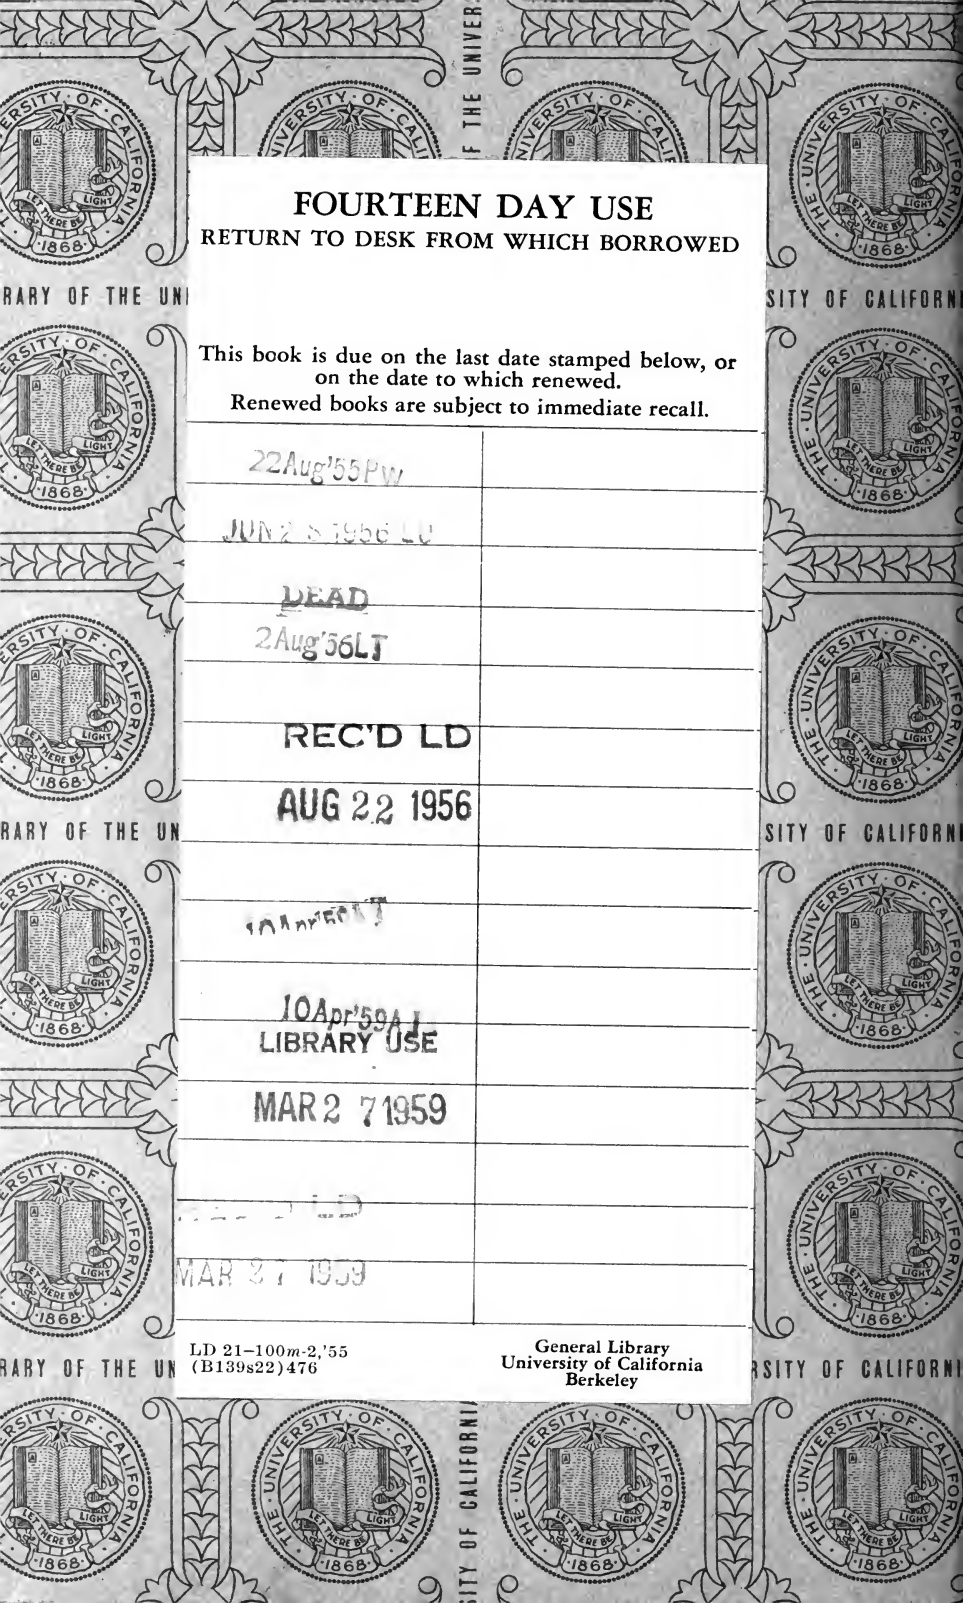 FOURTEEN DAY USE
RETURN TO DESK FROM WHICH BORROWED
This book is due on the last date stamped below, or
on the date to which renewed.
Renewed books are subject to immediate recall.
22Aug'55PW
JUN 2 1956 LU
DEAD
2Aug'56LT
REC'D LD
AUG 22 1956
10Apr'59AJ
LIBRARY USE
MAR 2 7 1959
LD
MAR 27 1959
LD 21–100m-2,'55
(B139s22)476
General Library
University of California
Berkeley
RARY OF THE UNI
SITY OF CALIFORNI
RARY OF THE UN
SITY OF CALIFORNI
RARY OF THE UN
RSITY OF CALIFORNI
F THE UNIVER
SITY OF CALIFORNI
THE UNIVERSITY OF CALIFORNIA
LET THERE BE LIGHT
1868